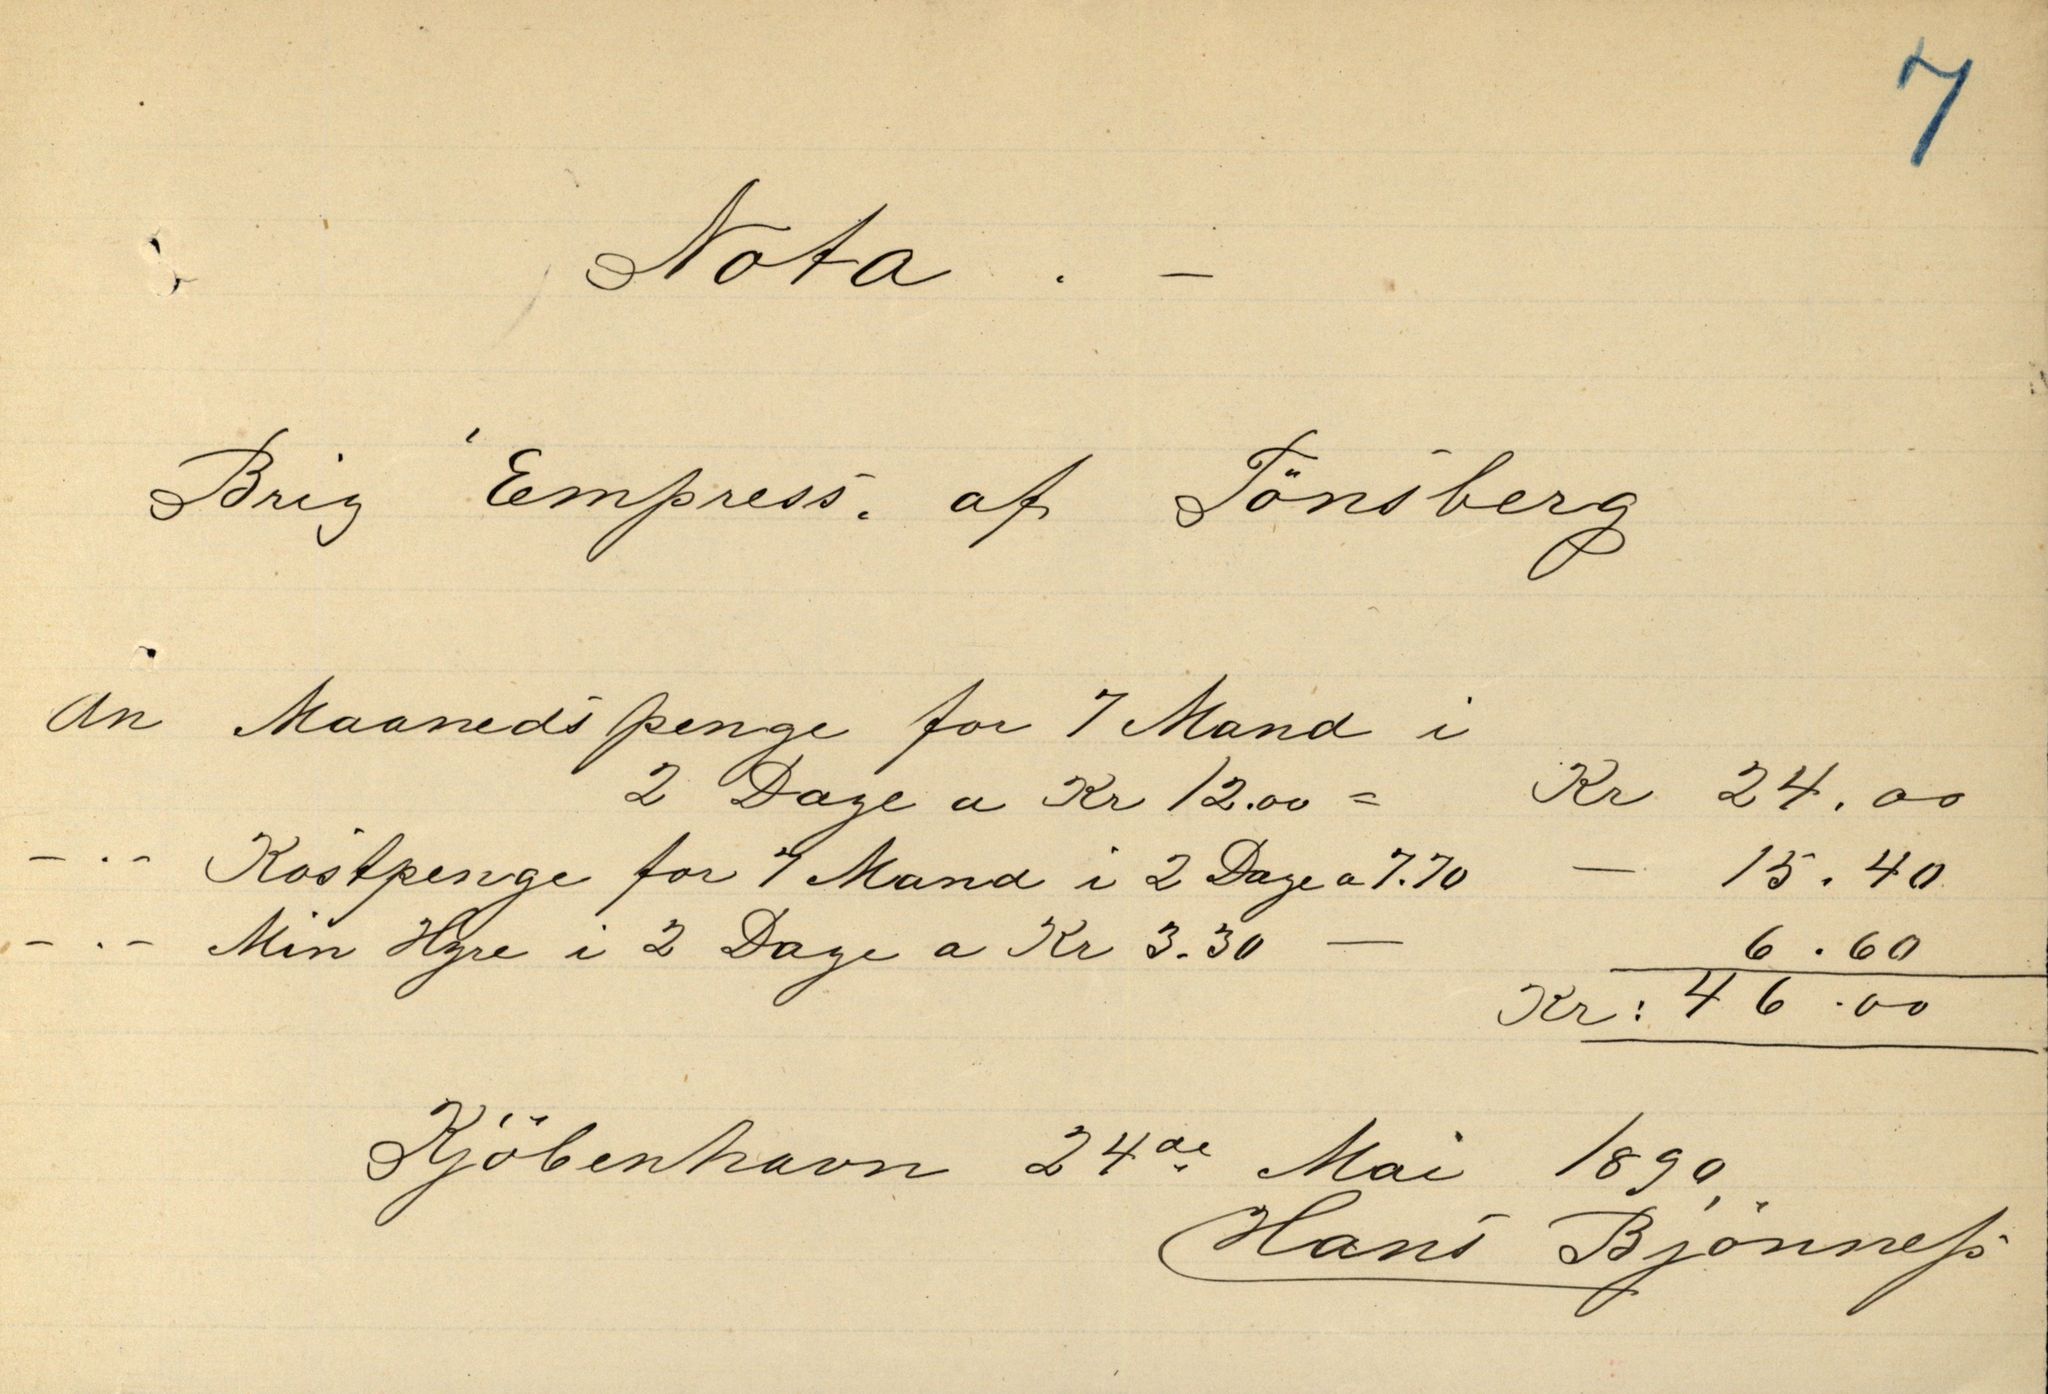 7
Nota . —
Brig "Empress. af Tönsberg
An Maanedspenge for 7 Mand i
2 Dage a Kr 12.00 = Kr 24.00
— . — Kostpenge for 7 Mand i 2 Dage a 7.70 — 15.40
— . — Min Hyre i 2 Dage a Kr 3.30 — 6.60
Kr: 46.00
Kjöbenhavn 24de Mai 1890,
Hans Bjönness